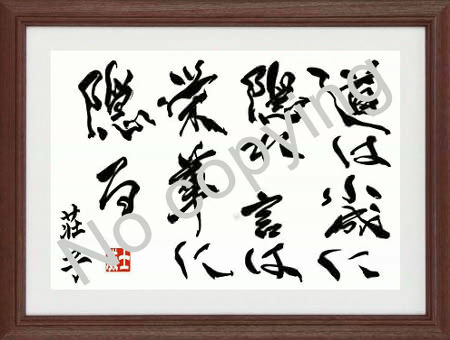 道は小成に
隠れ 言は
栄華に
隠る
荘子
No copying